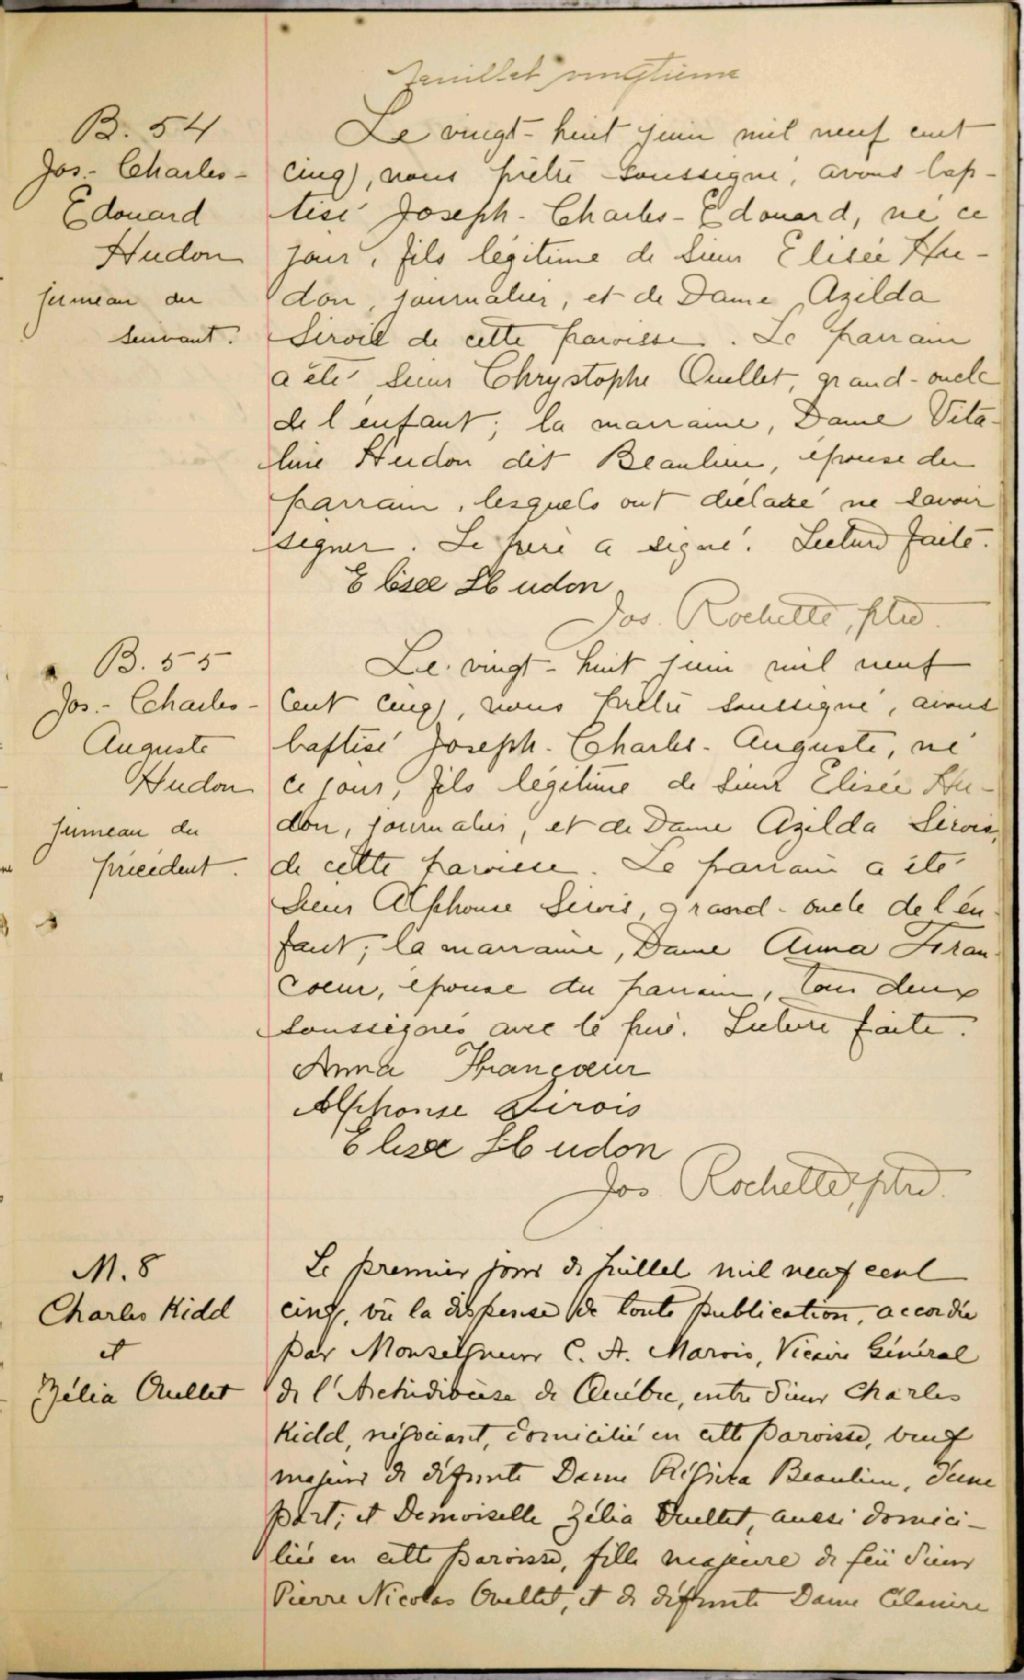 feuillet vingtième
B. 54
Jos.- Charles-
Edouard
Hudon
jumeau du
suivant.
Le vingt-huit juin mil neuf cent
cinq, nous prêtre soussigné, avons bap-
tisé Joseph-Charles-Edouard, né ce
jour, fils légitime de Sieur Elisée Hu-
don, journalier, et de Dame Azilda
Sirois de cette paroisse. Le parrain
a été Sieur Chrystophe Ouellet, grand-oncle
de l'enfant; la marraine, Dame Vita-
line Hudon dit Beaulieu, épouse du
parrain, lesquels ont déclaré ne savoir
signer. Le père a signé. Lecture faite.
Elisee Hudon
Jos. Rochette, ptre.
B. 55
Jos.- Charles-
Auguste
Hudon
jumeau du
précédent.
Le vingt-huit juin mil neuf
cent cinq, nous prêtre soussigné, avons
baptisé Joseph-Charles-Auguste, né
ce jour, fils légitime de Sieur Elisée Hu-
don, journalier, et de Dame Azilda Sirois,
de cette paroisse. Le parrain a été
Sieur Alphonse Sirois, grand-oncle de l'en-
fant; la marraine, Dame Anna Fran-
coeur, épouse du parrain, tous deux
soussignés avec le père. Lecture faite.
Anna Francœur
Alphonse Sirois
Elisee Hudon
Jos Rochette, ptre.
M. 8
Charles Kidd
et
Zélia Ouellet
Le premier jour de Juillet mil neuf cent
cinq, vu la dispense de toute publication, accordée
par Monseigneur C. A. Marois, Vicaire Général
de l'Archidiocèse de Québec, entre Sieur Charles
Kidd, négociant, domicilié en cette paroisse, veuf
majeur de défunte Dame Régina Beaulieu, d'une
part; et Demoiselle Zélia Ouellet, aussi domici-
liée en cette paroisse, fille majeure de feu Sieur
Pierre Nicolas Ouellet, et de défunte Dame Célanire